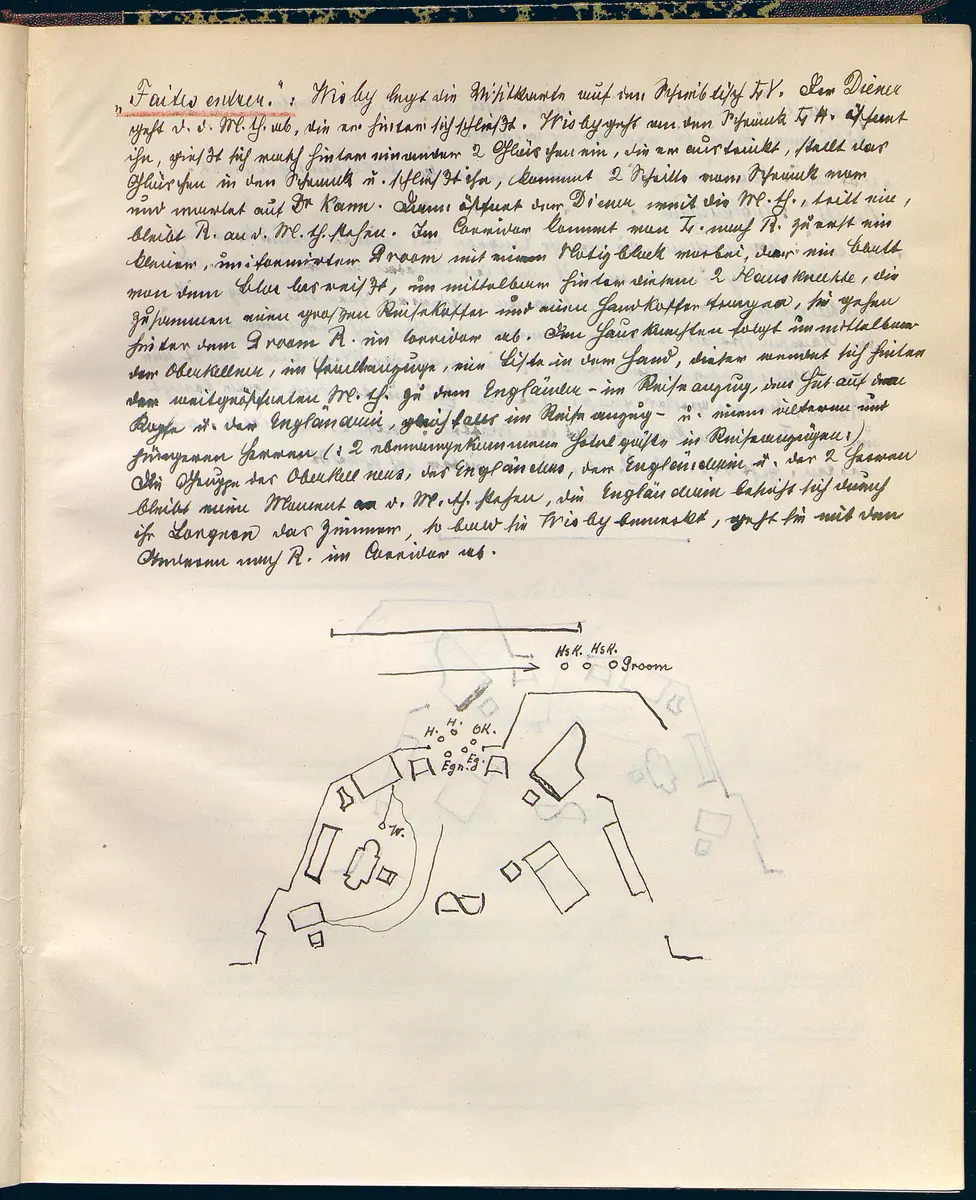 „Faites entrer.“: Wisby legt die Visitkarte auf den Schreibtisch L. V. Der Diener
geht d. d. M. th. ab, die er hinter sich schließt. Wisby geht an den Schrank L. H. öffnet
ihn, gießt sich rasch hintereinander 2 Gläschen ein, die er austrinkt, stellt das
Gläschen in den Schrank u. schließt ihn, kommt 2 Schritte vom Schrank vor
und wartet auf Dr Kann. Dann öffnet der Diener weit die M. th., tritt ein,
bleibt R. an d. M. th. stehen. Im Corridor kommt von L. nach R. zuerst ein
kleiner, uniformirter Groom mit einem Notizblock vorbei, der ein Blatt
von dem Bloc losreißt, unmittelbar hinter diesem 2 Hausknechte, die
zusammen einen großen Reisekoffer und einen Handkoffer tragen, sie gehen
hinter dem Groom R. im Corridor ab. Den Hausknechten folgt unmittelbar
der Oberkellner, im Frackanzuge, eine Liste in der Hand, dieser wendet sich hinter
der weitgeöffneten M. th. zu dem Engländer – im Reiseanzug, den Hut auf dem
Kopfe u. der Engländerin, gleichfalls im Reiseanzug – u. einem älteren und
jüngeren Herren (: 2 ebenangekommene Hotelgäste in Reiseanzügen :)
Die Gruppe des Oberkellners, des Engländers, der Engländerin u. der 2 Herren
bleibt einen Moment an d. M. th. stehen, die Engländerin besieht sich durch
ihr Lorgnon das Zimmer, so bald sie Wisby bemerkt, geht sie mit den
Anderen nach R. im Corridor ab.
Hsk. Hsk.
Groom
H. H. OK.
Egn. Eg.
W.